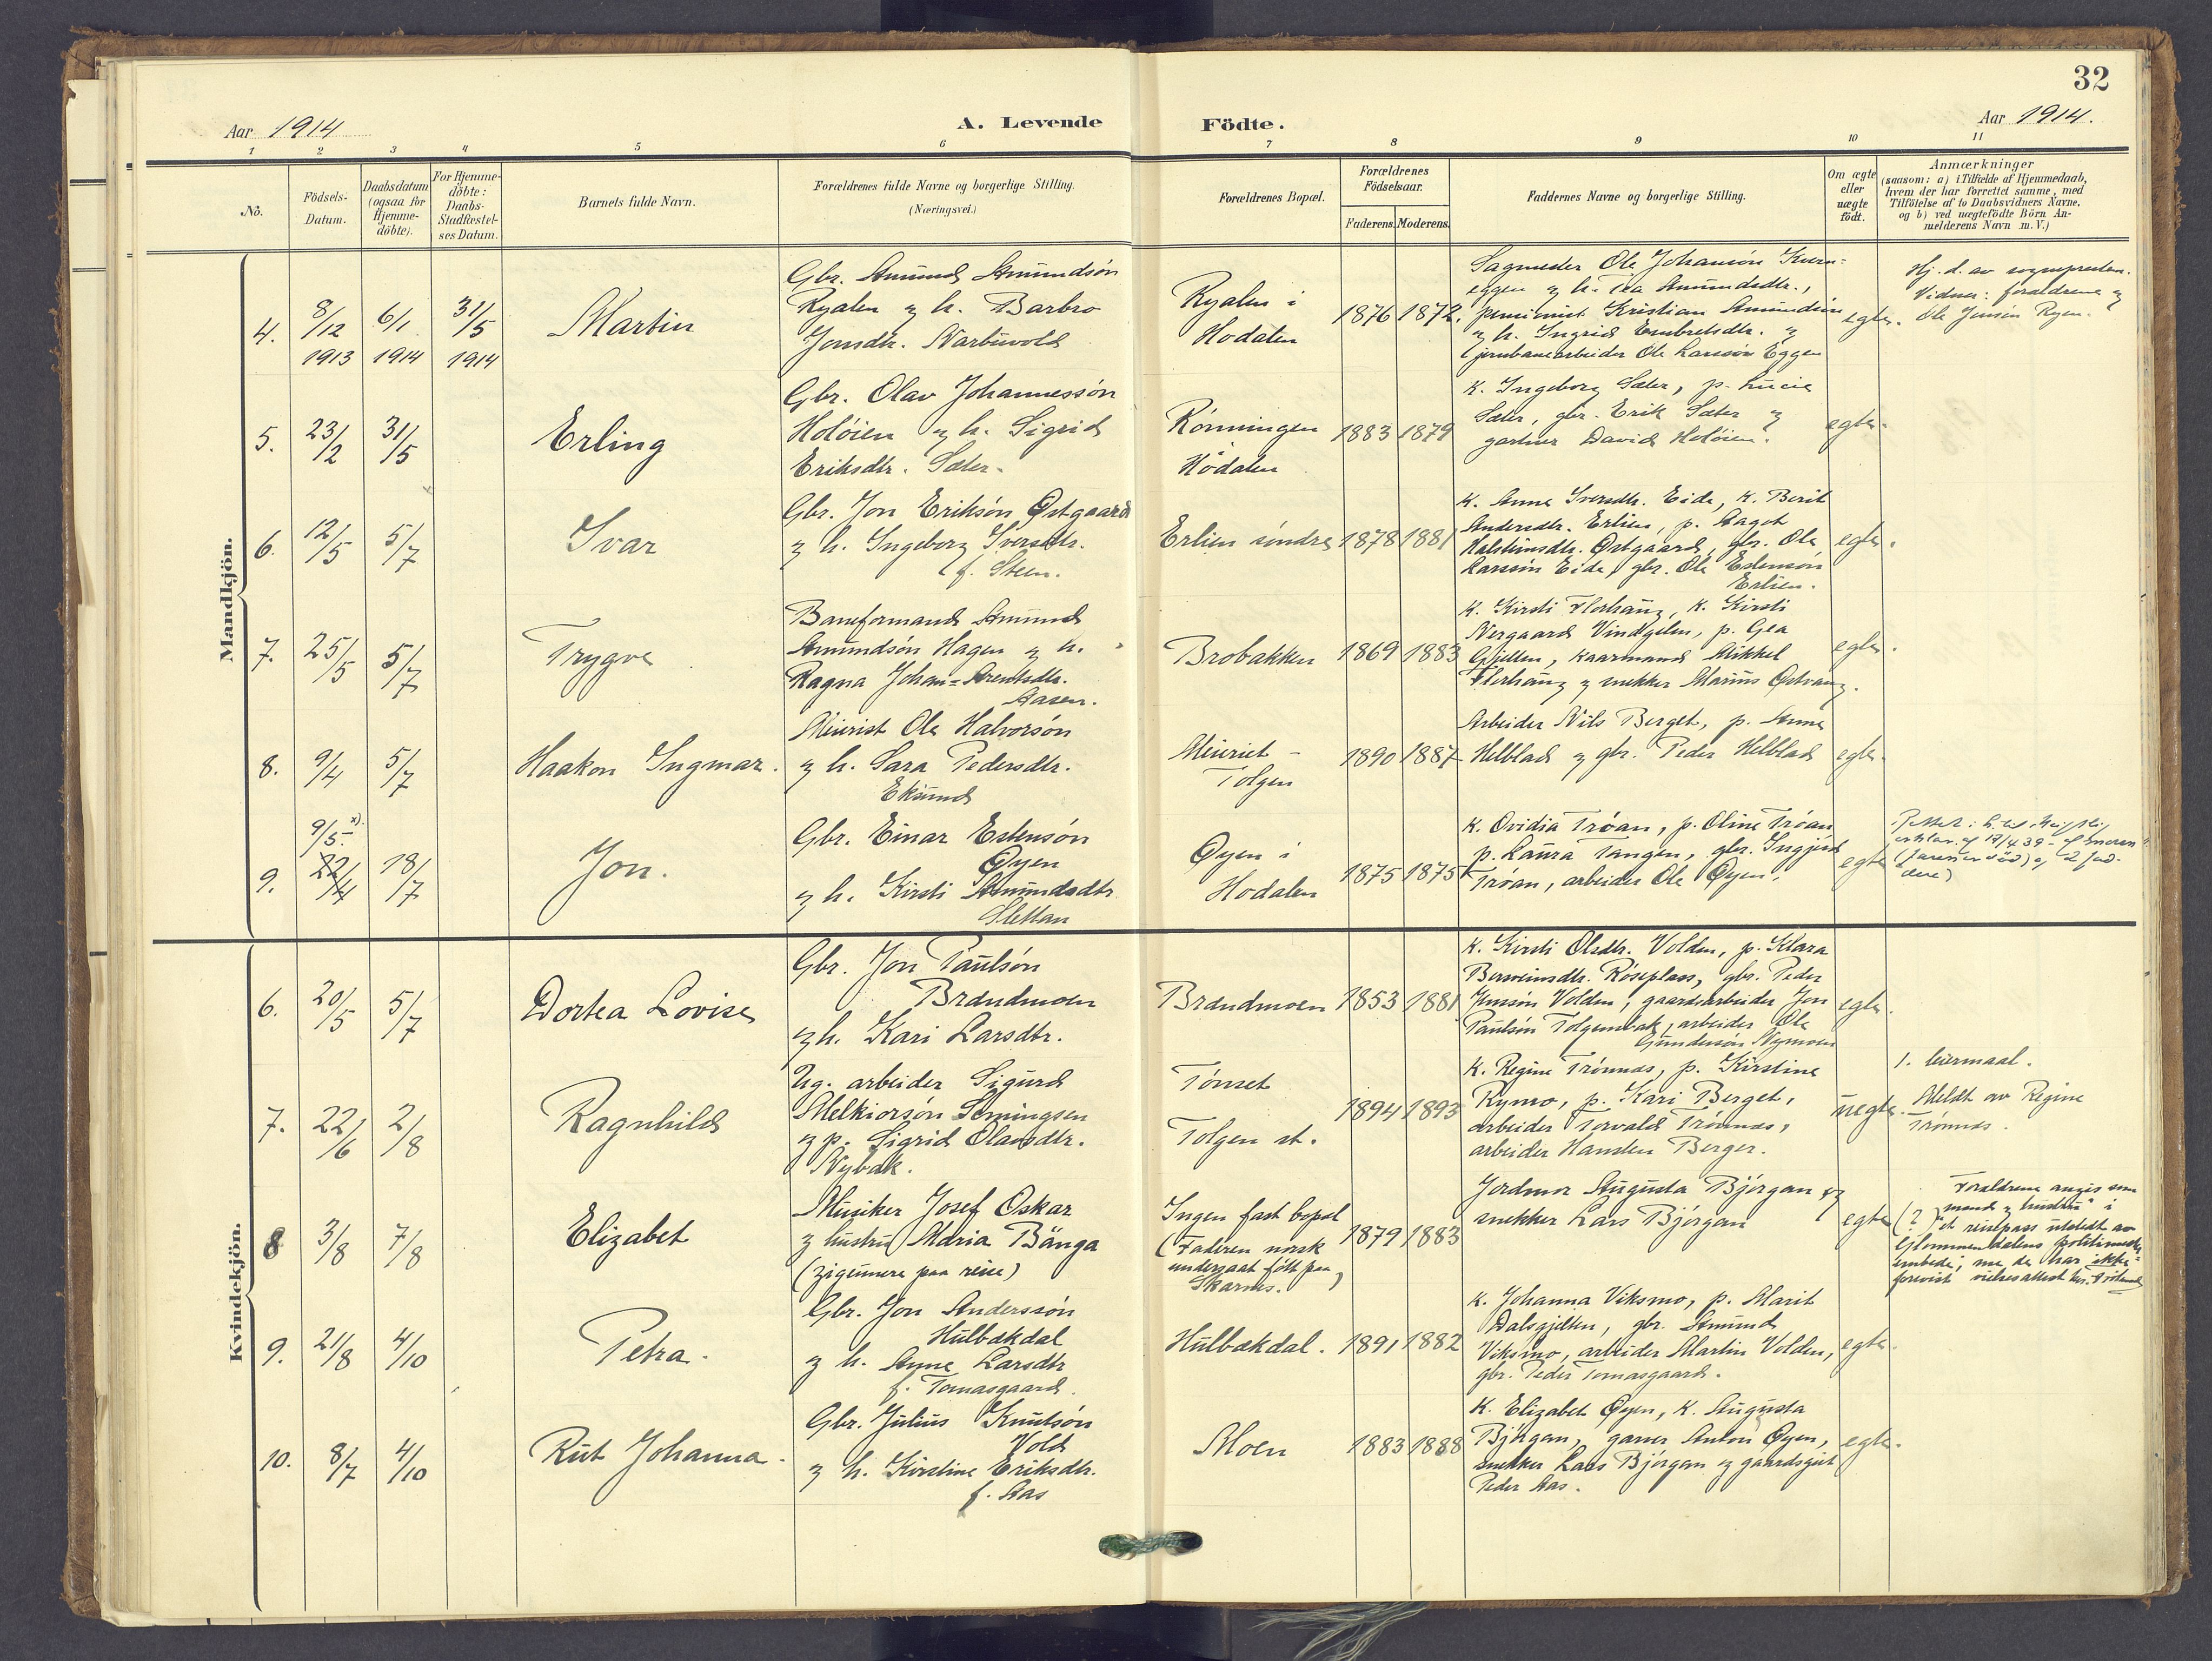 32
Aar 1914
A. Levende Födte.
Aar 1914.
1 2 3 4 5 6 7 8 9 10 11
No.
Födsels-
Datum.
Daabsdatum
(ogsaa for
Hjemme-
döbte).
For Hjemme-
döbte:
Daabs-
Stadfæstel-
ses Datum.
Barnets fulde Navn.
Forældrenes fulde Navne og borgerlige Stilling.
(Næringsvei.)
Forældrenes Bopæl.
Forældrenes
Födselsaar.
Faderens. Moderens.
Faddernes Navne og borgerlige Stilling.
Om ægte
eller
uægte
födt.
Anmærkninger
(saasom: a) i Tilfælde af Hjemmedaab,
hvem der har forrettet samme, med
Tilföielse af to Daabsvidners Navne,
og b) ved uægtefödte Börn An-
melderens Navn m. V.)
Mandkjön.
4.
8/12
1913
6/1
1914
31/5
1914
Martin
Gbr. Amund Amundsön
Ryalen og h. Barbro
Jonsdtr. Narbuvold
Ryalen i
Hodalen
1876 1872.
Sagmester Ole Johansön Kvern=
eggen og h. Tea Amundsdtr.,
Kristian Amundsön
og h. Ingrid Embretsdtr. og
jernbanearbeider Ole Larssön Eggen
egte.
Hj. d. av sognepresten.
Vidner: foreldrene og
Ole Jensön Ryen.
5.
23/2
31/5
Erling
Gbr. Olav Johannessön
Holöien og h. Sigrid
Eriksdtr. Sæter.
Rönningen
Hodalen
1883 1879
K. Ingeborg Sæter, p. Lucie
Sæter, gbr. Erik Sæter og
gartner David Holöien.
egte.
6.
12/5
5/7
Ivar
Gbr. Jon Eriksön Østgaard
og h. Ingeborg Iversdtr.
f. Steen.
Erlien söndre
1878 1881
K. Anne Iversdtr. Eide, K. Berit
Andersdtr. Erlien, p. Aagot
Halsteinsdtr. Østgaard, gbr. Ole
Larssön Eide, gbr. Ole Estensön
Erlien.
egte.
7.
25/5
5/7
Trygve
Baneformand Amund
Amundsön Hagen og h.
Ragna Johan=Arentsdtr.
Aasen.
Brobakken
1869 1883
K. Kirsti Flerhaug, K. Kirsti
Nergaard Vindgilen, p. Gea
Gjelten, kaarmand Mikkel
Flerhaug og snekker Marius Østvang.
egte.
8.
9/4
5/7
Haakon Ingmar.
Meierist Ole Halvorsön
og h. Sara Pedersdtr.
Eksund
Meieriet -
Tolgen
1890 1887
Arbeider Nils Berget, p. Anne
Helblad og gbr. Peder Helblad
egte.
9.
9/5 x).
22/4
18/7
Jon.
Gbr. Einar Estensön
Øyen
og h. Kirsti Amundsdtr
Slettan
Øyen i
Hodalen
1875 1875
K. Ovidia Tröan, p. Oline Tröan
p. Laura Tangen, gbr. Ingjerd
Tröan, arbeider Ole Øyen.
egte
erklær. af 17/4 39 - af moren
(faren er död) og 2 fad-
dere)
Kvindekjön.
6.
20/5
5/7
Dortea Lovise
Gbr. Jon Paulsön
Brændmoen
og h. Kari Larsdtr.
Brændmoen
1853 1881
K. Kirsti Olsdtr. Volden, p. Klara
Røseplass, gbr. Peder
Jonsson Volden, gaardsarbeider Jon
Paulsön Tolgensbak, arbeider Ole
Gundersön Nymoen
egte.
7.
22/6
2/8
Ragnhild
Ug. arbeider Sigurd
Melkiorsön Semingsen
og p. Sigrid Olausdtr.
Nybak.
Tönset
Tolgen st.
1894 1893
K. Regine Trönnæs, p. Kirstine
Rymo, p. Kari Berget,
arbeider Torvald Trönnæs,
arbeider Hansten Berger.
uegte.
1. leiermaal.
Meldt av Regine
Trönnæs.
8
3/8
7/8
Elizabet
Musiker Josef Oskar
og hustru Maria Bänga
(zigeunere paa reise)
Ingen fast bopæl
(Faderen norsk
undersaat född paa
Skarnes.)
1879 1883
Jordmor Augusta Björgan og
snekker Lars Björgan
egte
(?)
Forældrene angis som
"mand og hustru" i
et reisepass utstedt av
Glommendalens politimesterembede,
men de har ikke
forevist vielsesattest
9.
21/8
4/10
Petra.
Gbr. Jon Anderssön
Hulbækdal
og h. Anne Larsdtr
f. Tomasgaard.
Hulbækdal.
1891 1882
K. Johanna Viksmo, p. Marit
Dalsgjelten, gbr. Amund
Viksmo, arbeider Martin Volden,
gbr. Peder Tomasgaard.
egte.
10.
8/7
4/10
Rut Johanna.
Gbr. Julius Knutsön
Vold
og h. Kirstine Eriksdtr.
f. Aas
Moen
1883 1888
K. Elizabet Øyen, K. Augusta
Björgan, garver Anton Øyen,
snekker Lars Björgan og gaardsgut
Peder Aas.
egte.